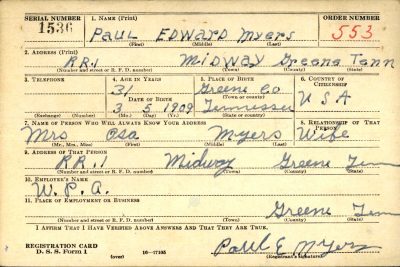 SERIAL NUMBER 1. NAME (Print) ORDER NUMBER
1536 PAUL EDWARD Myers 553
(First) (Middle) (Last)
2. ADDRESS (Print)
RR.1 MIDWAY Greene Tenn
(Number and street or R. F. D. number) (Town) (County) (State)
3. TELEPHONE 4. AGE IN YEARS 5. PLACE OF BIRTH 6. COUNTRY OF CITIZENSHIP
31 Greene Co
DATE OF BIRTH (Town or county) USA
3 5 1909 Tennessee
(Exchange) (Number) (Mo.) (Day) (Yr.) (State or country)
7. NAME OF PERSON WHO WILL ALWAYS KNOW YOUR ADDRESS 8. RELATIONSHIP OF THAT PERSON
Mrs Osa Myers Wife
(Mr., Mrs., Miss) (First) (Middle) (Last)
9. ADDRESS OF THAT PERSON
RR.1 Midway Greene Tenn
(Number and street or R. F. D. number) (Town) (County) (State)
10. EMPLOYER'S NAME
W.P.A.
11. PLACE OF EMPLOYMENT OR BUSINESS
Greene Tenn
(Number and street or R. F. D. number) (Town) (County) (State)
I AFFIRM THAT I HAVE VERIFIED ABOVE ANSWERS AND THAT THEY ARE TRUE.
REGISTRATION CARD
D. S. S. Form 1 (over) 16—17105 Paul E Myers
(Registrant's signature)